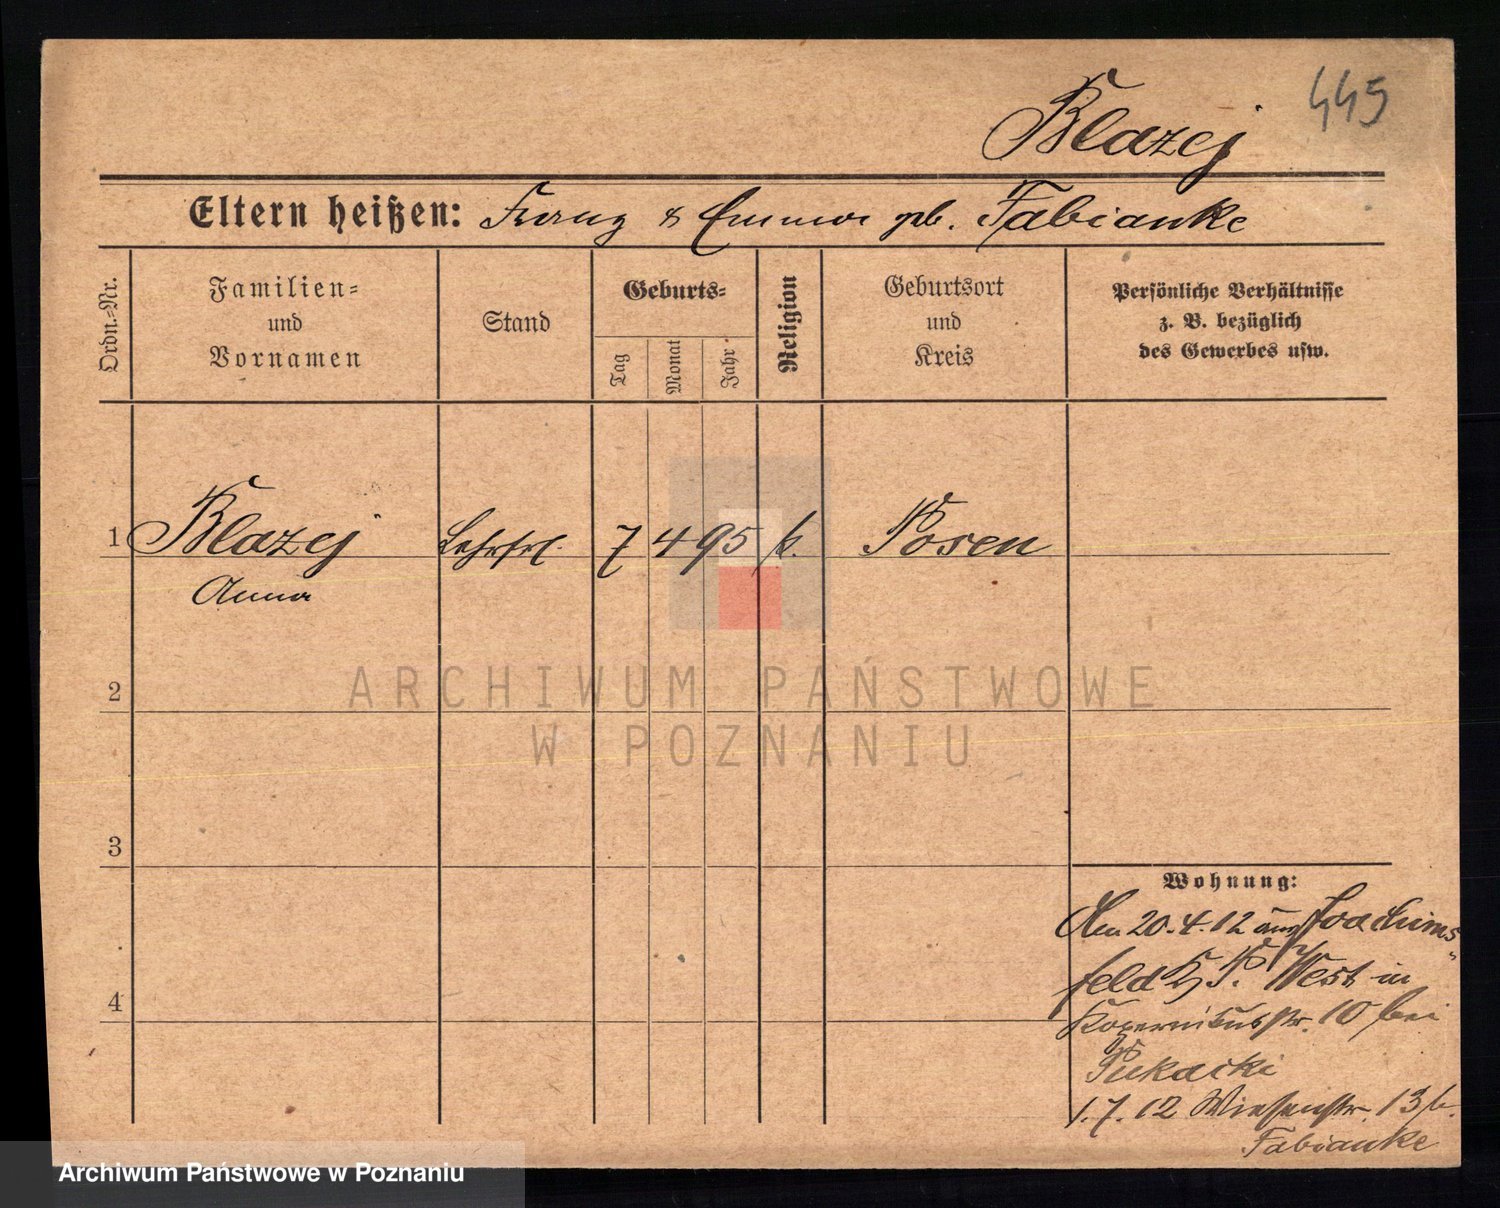 445
Blazej
Eltern heißen: Franz & Emma geb. Fabianke
Ordn.-Nr.
Familien- und Vornamen
Stand
Geburts-
Tag
Monat
Jahr
Religion
Geburtsort und Kreis
Persönliche Verhältnisse
z. B. bezüglich
des Gewerbes usw.
1 Blazej Lehrfrl. 7 4 95 k. Posen
Anna
2
3
4
Wohnung:
Am 20.4.12 aus Joachims-
feld Kr. P. West in
Kopernikusstr. 10 bei
Pukacki
1.7.12 Wiesenstr. 13 b.
Fabianke
ARCHIWUM PAŃSTWOWE
W POZNANIU
Archiwum Państwowe w Poznaniu